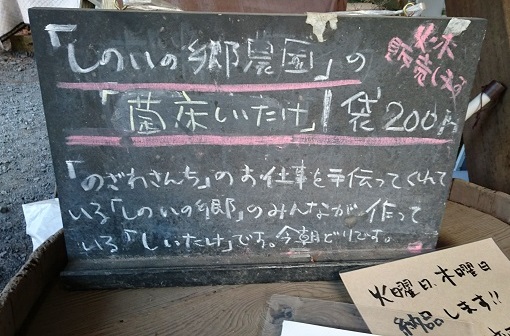 「しのいの郷農園」の
火・木
販売してる
「菌床しいたけ」1袋200円
「のざわさんち」のお仕事を手伝ってくれて
いる「しのいの郷」のみんなが作って
いる「しいたけ」です。今朝どりです。
火曜日、木曜日
納品します!!